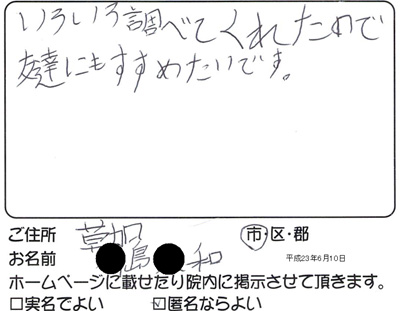 いろいろ調べてくれたので
友達にもすすめたいです。
ご住所 草加 市・区・郡
お名前 島 和 平成23年6月10日
ホームページに載せたり院内に掲示させて頂きます。
□実名でよい ☑匿名ならよい